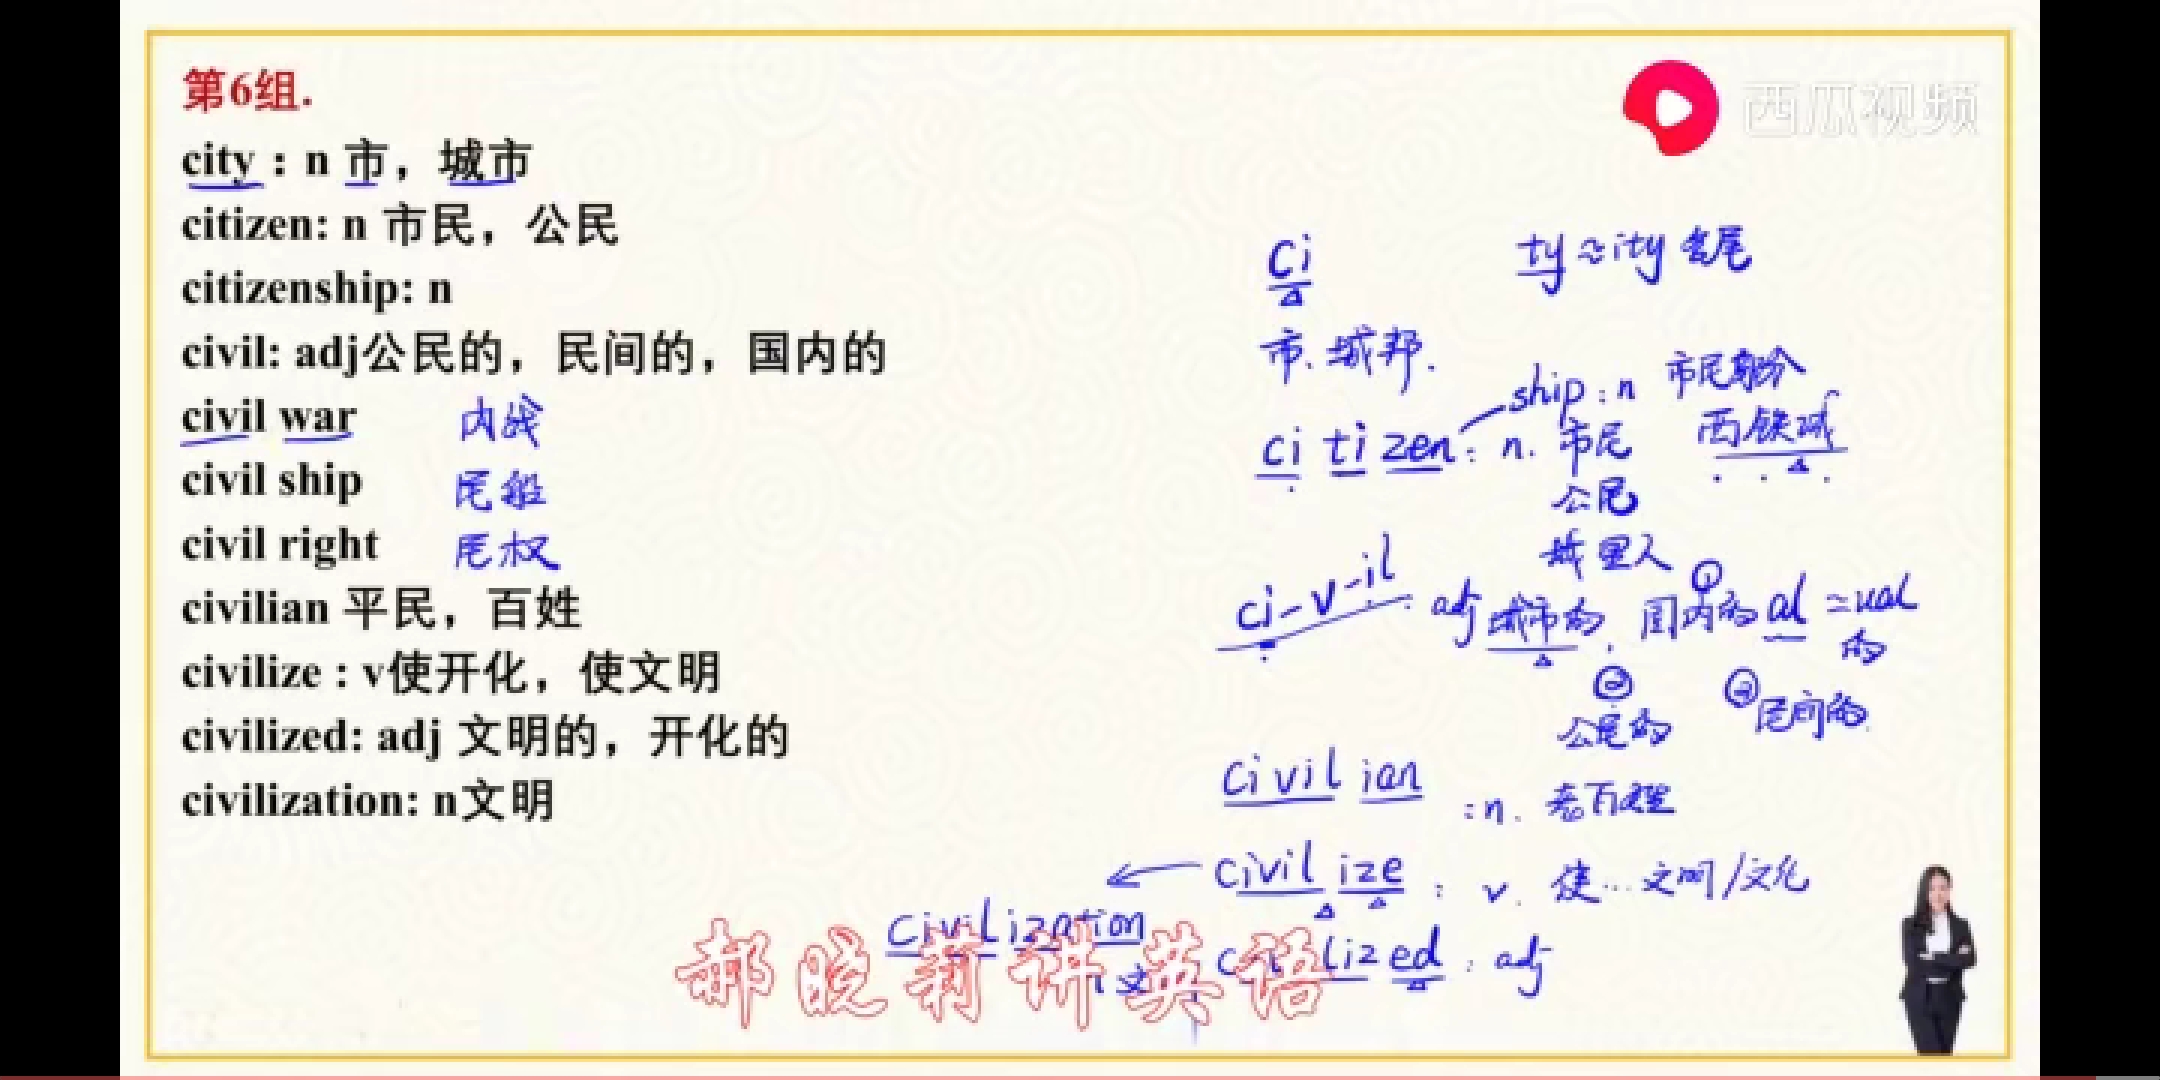 第6组.
西瓜视频
city : n 市，城市
citizen: n 市民，公民
citizenship: n
civil: adj公民的，民间的，国内的
civil war 内战
civil ship 民船
civil right 民权
civilian 平民，百姓
civilize : v使开化，使文明
civilized: adj 文明的，开化的
civilization: n文明
ci ty ≈ ity 名尾
市、城邦.
ship : n 市民身份
ci ti zen : n. 市民 西铁城
公民
城里人
ci-v-il adj 城市的. ①国内的 al = ual
的
② 公民的 ③ 民间的
civil ian : n. 老百姓
civil ize : v. 使... 文明/文化
civilization
lized : adj
郝晓莉讲英语